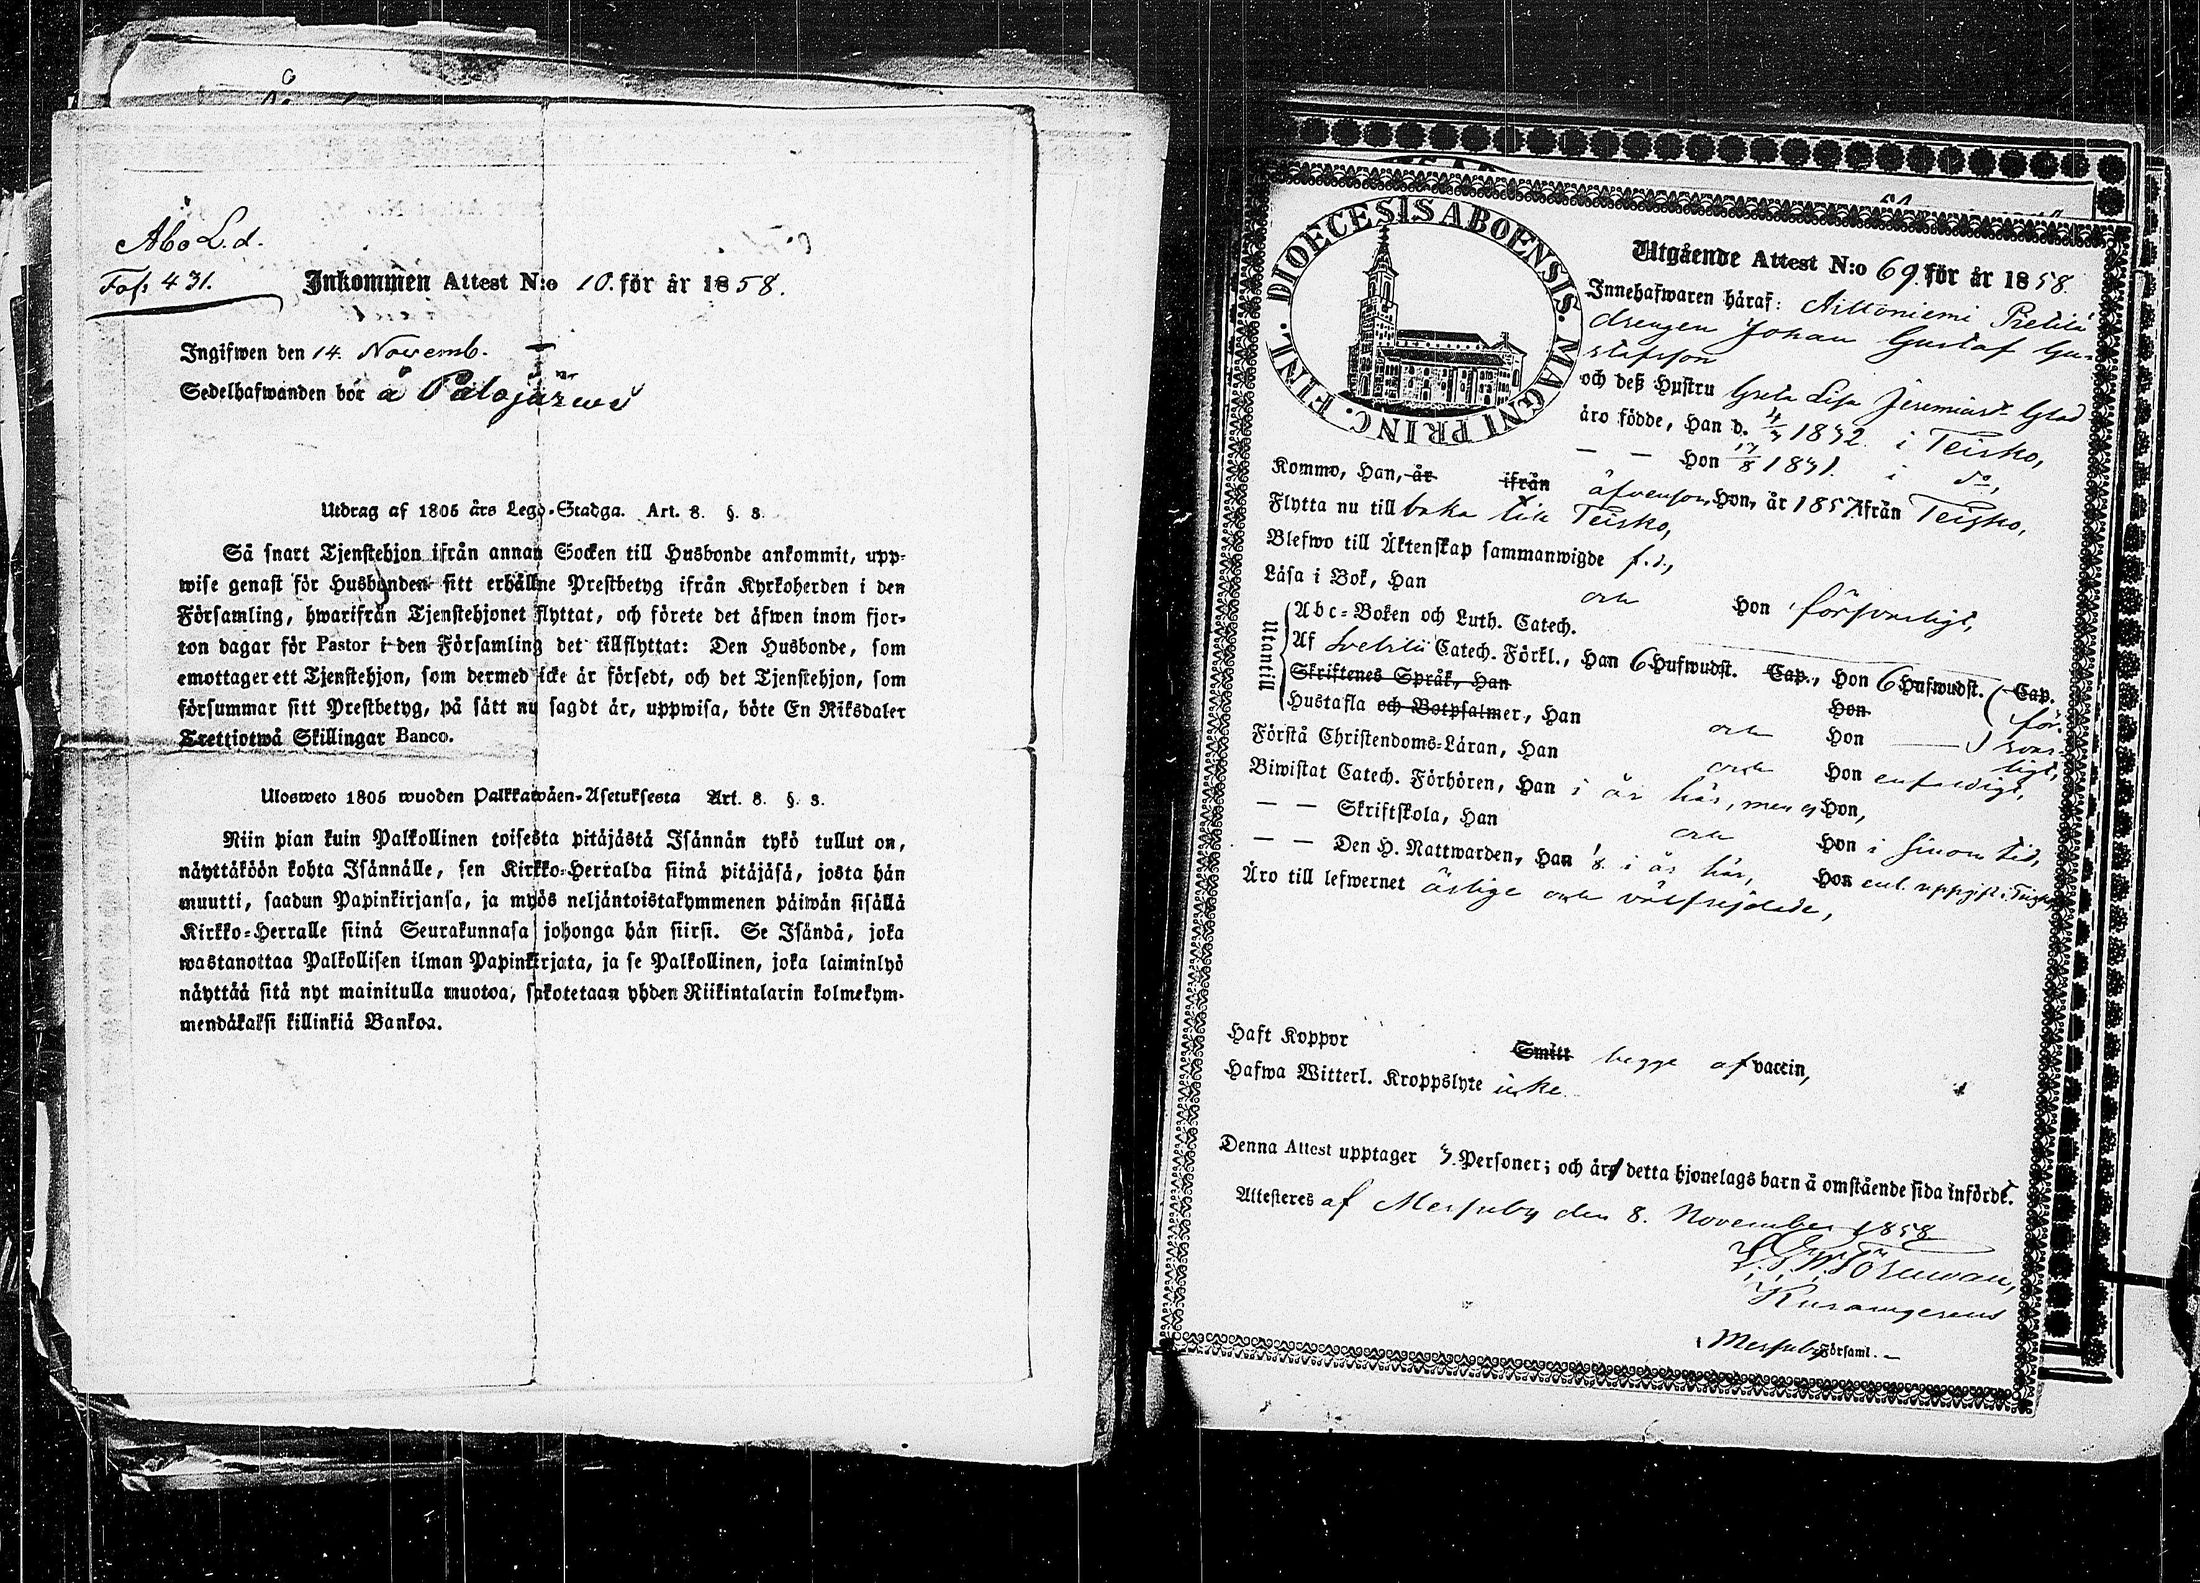 Åbo L. d.
Fol. 431.
Inkommen Attest N:o 10. för år 1858.
Ingifwen den 14. Novemb.
Sedelhafwanden bor å Palojärwi
Utdrag af 1805 års Lego-Stadga. Art. 8. §. 3.
Så snart Tjenstehjon ifrån annan Socken till Husbonde ankommit, upp-
wise genast för Husbonden sitt erhållne Prestbetyg ifrån Kyrkoherden i den
Församling, hwarifrån Tjenstehjonet flyttat, och förete det äfwen inom fjor-
ton dagar för Pastor i den Församling det tillflyttat: Den Husbonde, som
emottager ett Tjenstehjon, som dermed icke är försedt, och det Tjenstehjon, som
försummar sitt Prestbetyg, på sätt nu sagdt är, uppwisa, böte En Riksdaler
Trettiotwå Skillingar Banco.
Ulosweto 1805 wuoden Palkkawäen-Asetuksesta Art. 8. §. 3.
Niin pian kuin Palkollinen toisesta pitäjästä Isännän tykö tullut on,
näyttäköön kohta Isännälle, sen Kirkko-Herralda siinä pitäjäsä, josta hän
muutti, saadun Papinkirjansa, ja myös neljäntoistakymmenen päiwän sisällä
Kirkko-Herralle siinä Seurakunnasa johonga hän siirsi. Se Isändä, joka
wastanottaa Palkollisen ilman Papinkirjata, ja se Palkollinen, joka laiminlyö
näyttää sitä nyt mainitulla muotoa, sakotetaan yhden Riikintalarin kolmekym-
mendäkaksi killinkiä Bankoa.
DIOECESIS ABOENSIS. MAGNI PRINC. FINL.
Utgående Attest N:o 69. för år 1858
Innehafwaren häraf: Aittoniemi Prettilä
drengen Johan Gustaf Gu-
stafsson
och deß Hustru Greta Lisa Jeremiasd:r Glad
äro födde, Han d. 4/3 1832 i Teisko,
— — Hon 17/8 1831. i d:o,
Kommo, Han, år ifrån äfvensom Hon, år 1857 ifrån Teisko,
Flytta nu till baka till Teisko,
Blefwo till Äktenskap sammanwigde f. d.,
Läsa i Bok, Han och Hon försvarligt,
Utantill
Abc-Boken och Luth. Catech.
Af Svebilii Catech. Förkl., Han 6 Hufwudst. Cap., Hon 6 Hufwudst. Cap.
Skriftenes Språk, Han Hon för-
Hustafla och Botpsalmer, Han och Hon — svar-
ligt,
Förstå Christendoms-Läran, Han och Hon enfaldigt,
Biwistat Catech. Förhören, Han i år här, men ej Hon,
— — Skriftskola, Han och Hon i sinom tid,
— — Den H. Nattwarden, Han i år här, Hon enl. uppgift i Teisko,
Äro till lefwernet ärlige och välfrejdade,
Haft Koppor Smitt begge af vaccin,
Hafwa Witterl. Kroppslyte icke
Denna Attest upptager 3. Personer; och är detta hjonelags barn å omstående sida infördt.
Attesteres af Messuby den 8. November 1858
Församl.